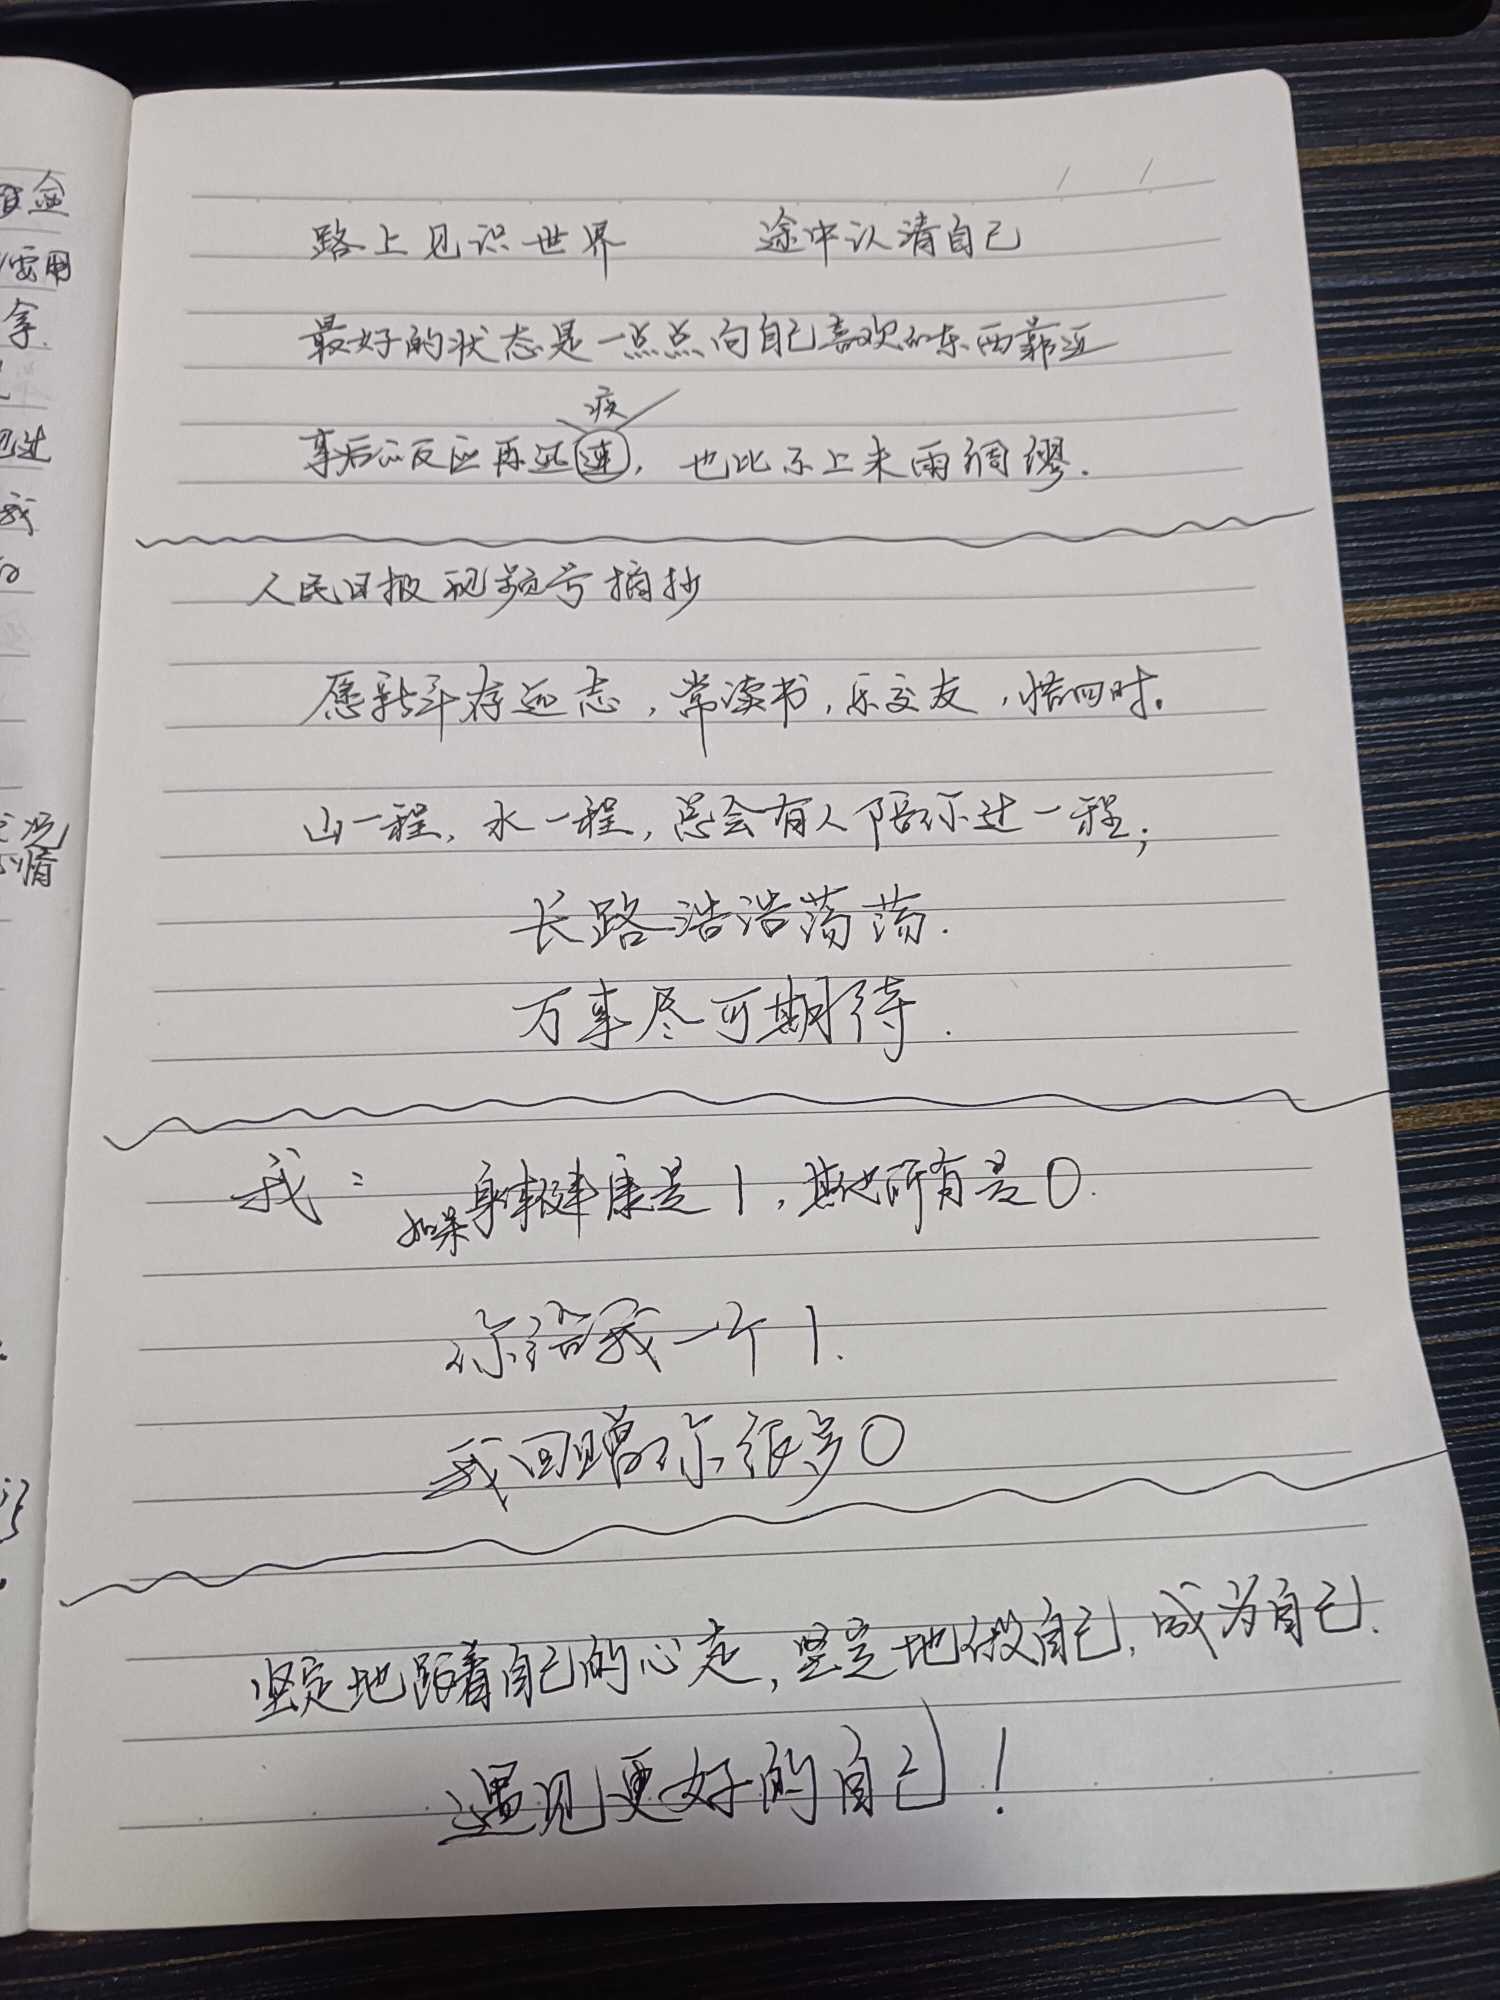 路上见识世界 途中认清自己
最好的状态是一点点向自己喜欢的东西靠近
疾
事后的反应再迅速，也比不上未雨绸缪.
人民日报视频号摘抄
愿新年存远志，常读书，乐交友，惜四时。
山一程，水一程，总会有人陪你过一程；
长路浩浩荡荡.
万事尽可期待.
我：如果身体健康是1，其他所有是0.
你给我一个1.
我回赠你很多0
坚定地跟着自己的心走，坚定地做自己，成为自己.
遇见更好的自己！
金
需用
拿.
过
我
况
情